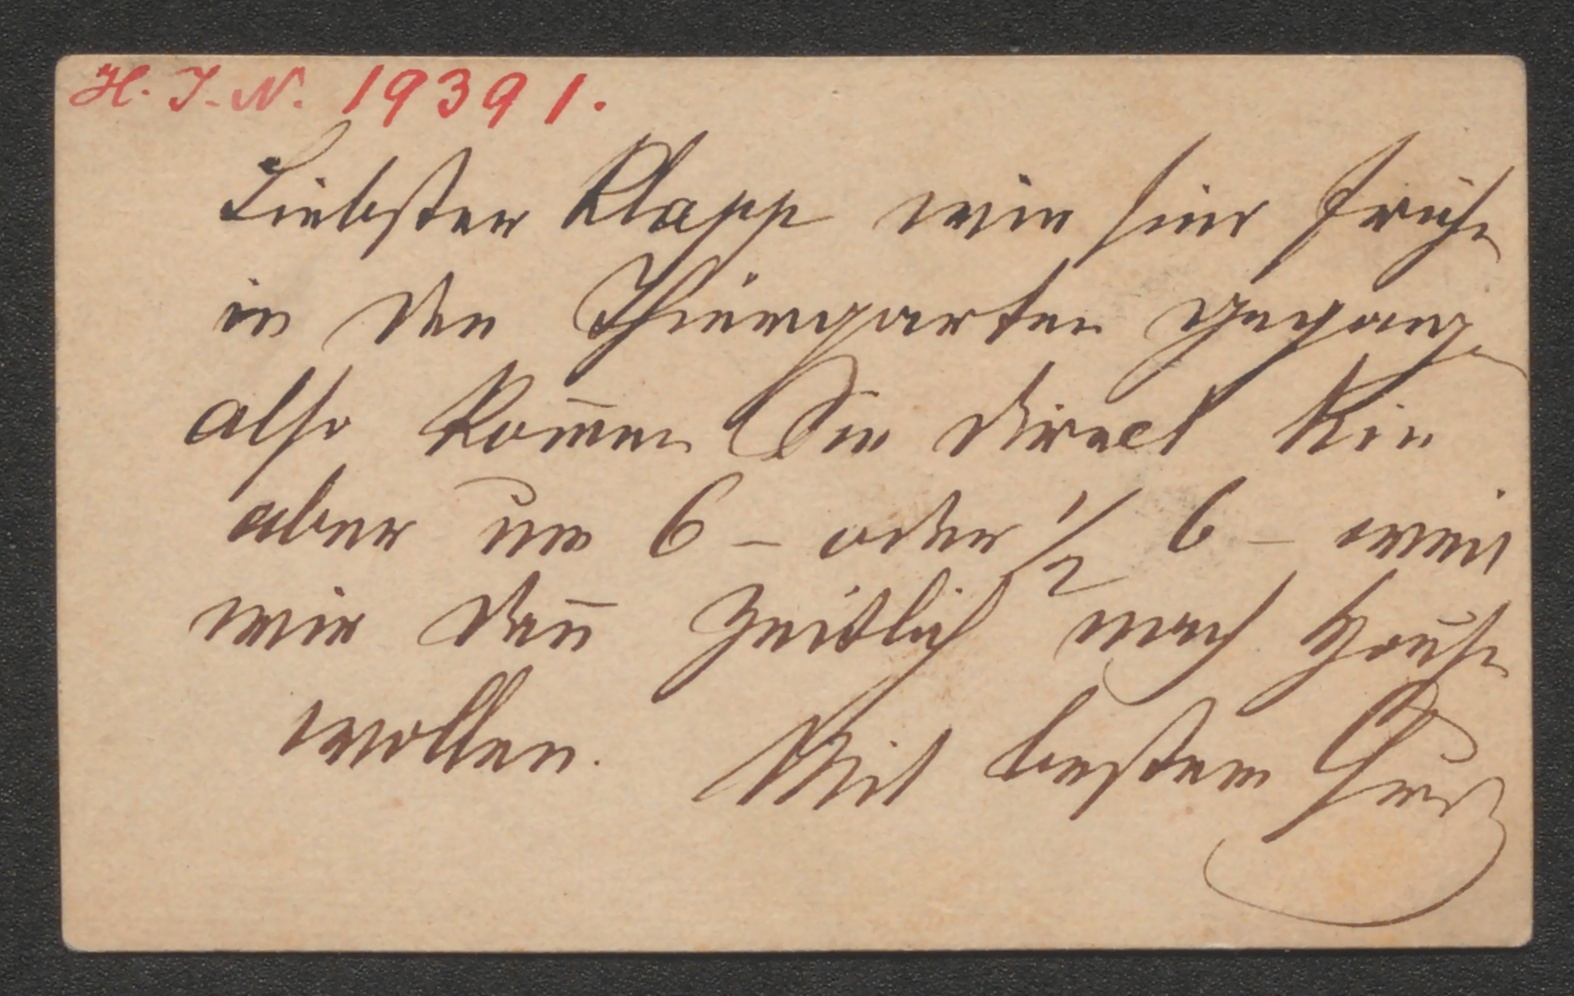 H. I. N. 19391.
Liebster Klapp wir sind früh
in den Thiergarten gegang
also kom̄en Sie direct hin
aber um 6 – oder ½ 6 – weil
wir dan̄ zeitlich nach Hause
wollen. Mit bestem Gruß